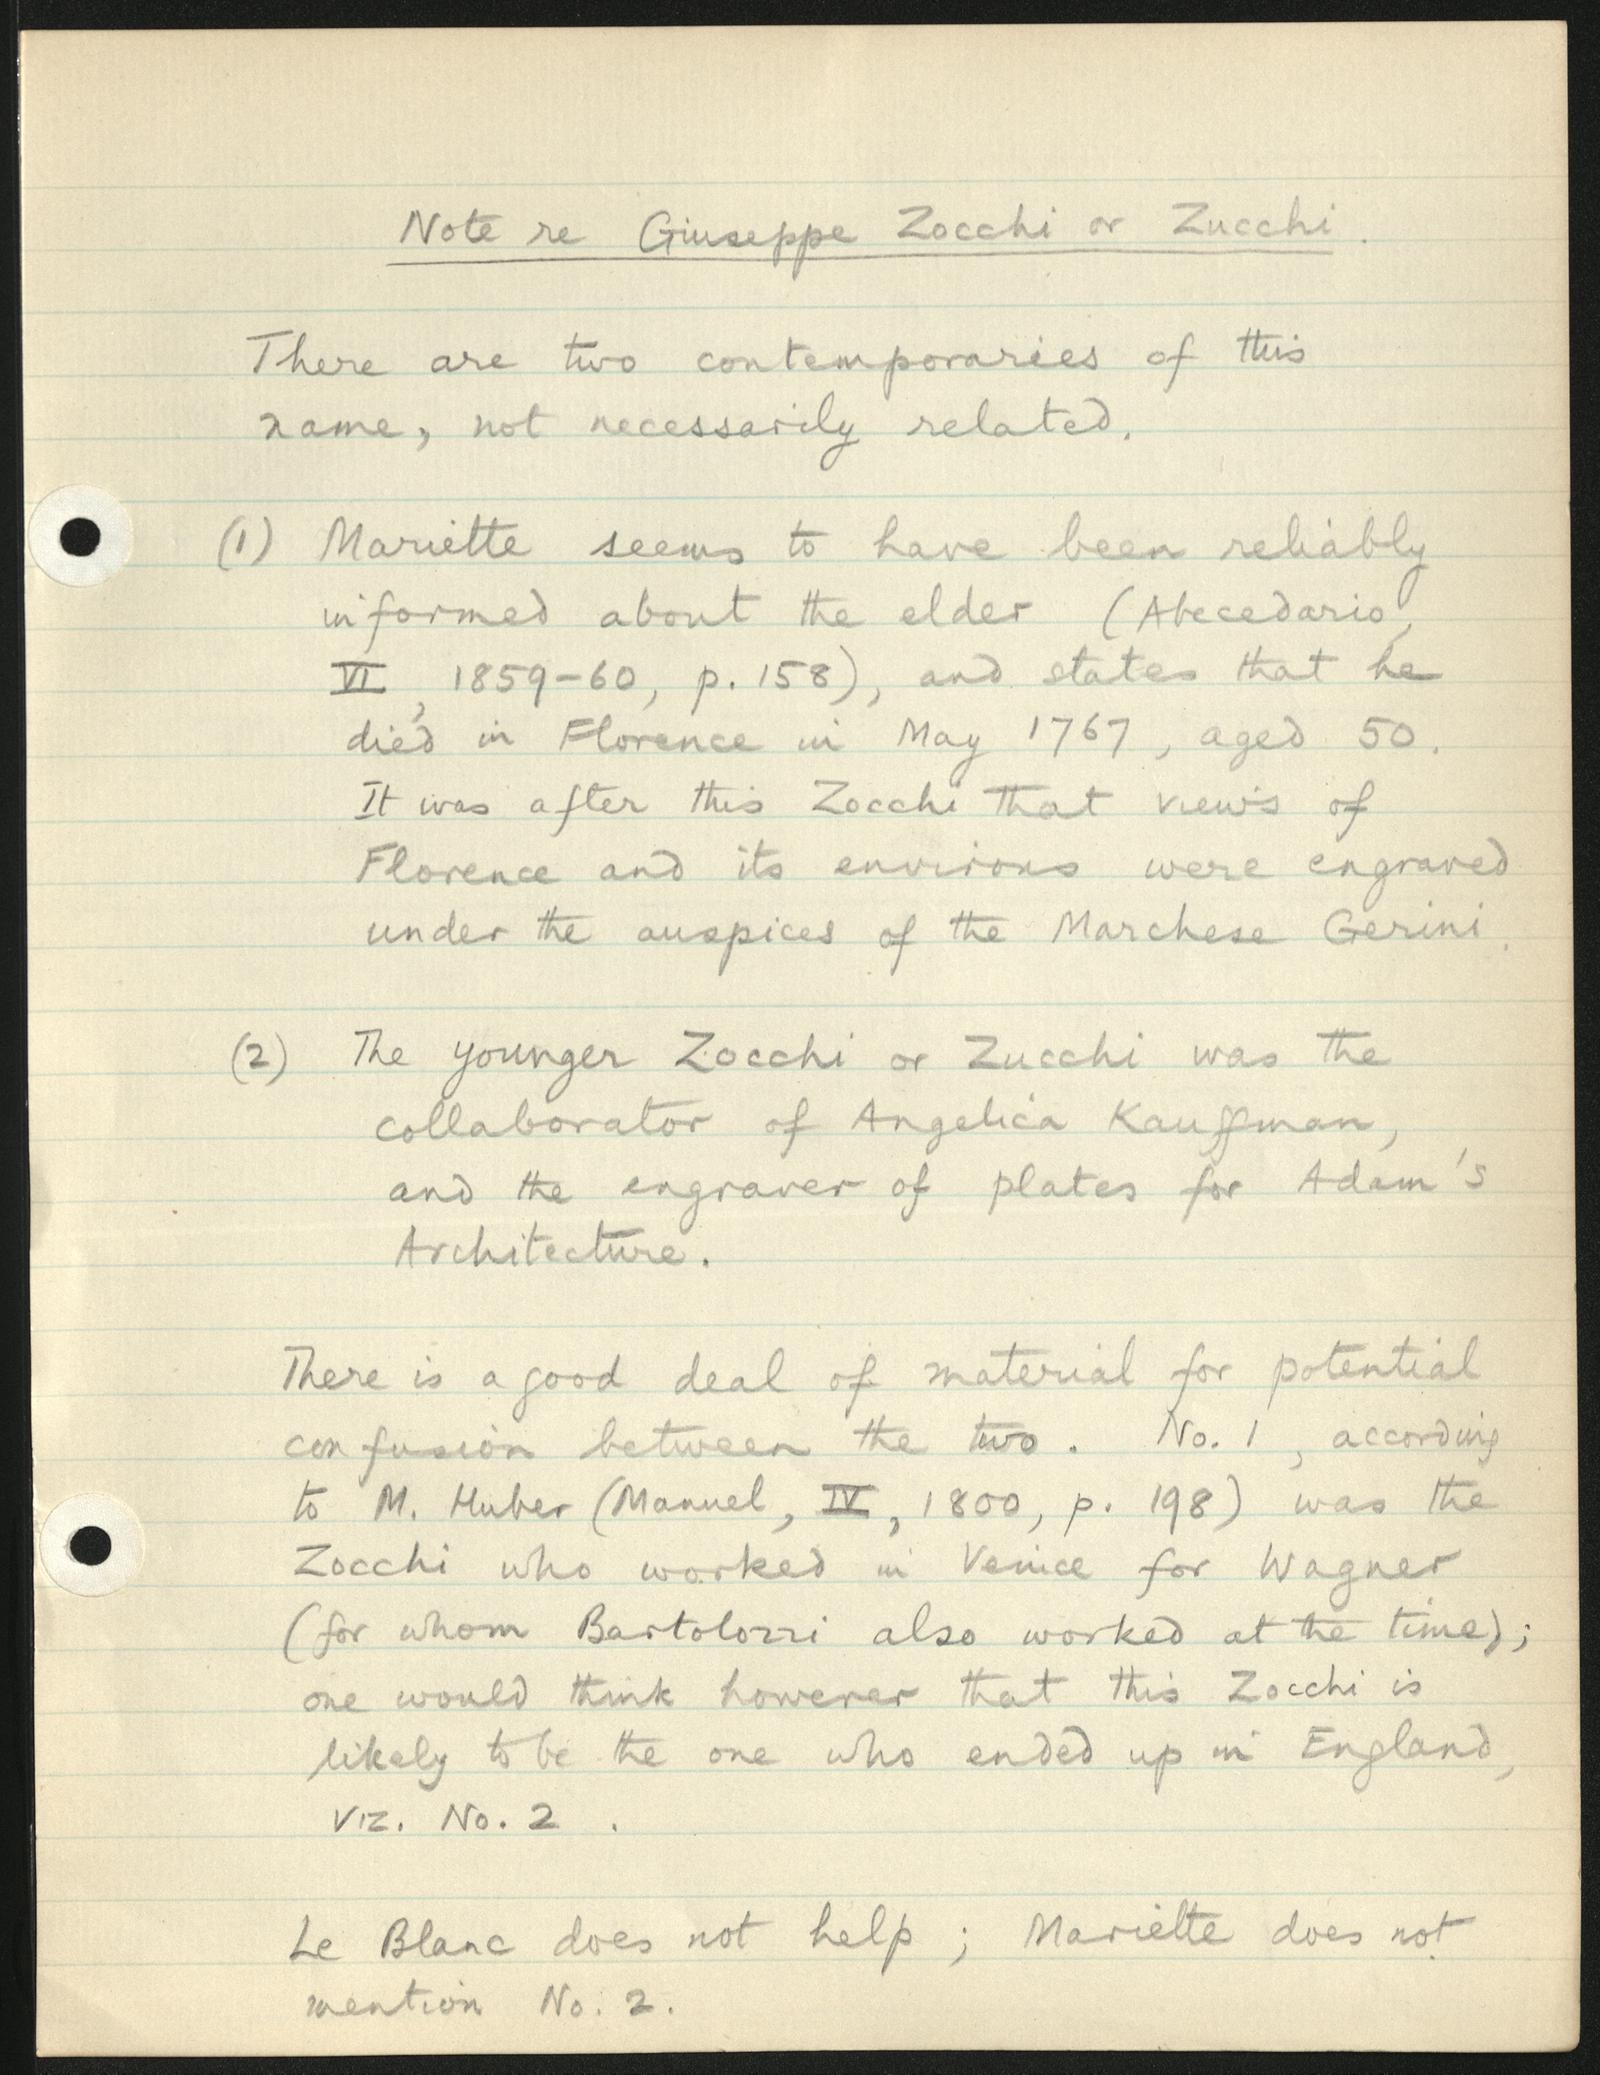 Note re Giuseppe Zocchi or Zucchi.
There are two contemporaries of this
name, not necessarily related.
(1) Mariette seems to have been reliably
informed about the elder (Abecedario,
VI, 1859-60, p. 158), and states that he
died in Florence in May 1767, aged 50.
It was after this Zocchi that views of
Florence and its environs were engraved
under the auspices of the Marchese Gerini.
(2) The younger Zocchi or Zucchi was the
collaborator of Angelica Kauffman,
and the engraver of plates for Adam's
Architecture.
There is a good deal of material for potential
confusion between the two. No. 1, according
to M. Huber (Manuel, IV, 1800, p. 198) was the
Zocchi who worked in Venice for Wagner
(for whom Bartolozzi also worked at the time);
one would think however that this Zocchi is
likely to be the one who ended up in England,
viz. No. 2.
Le Blanc does not help; Mariette does not
mention No. 2.